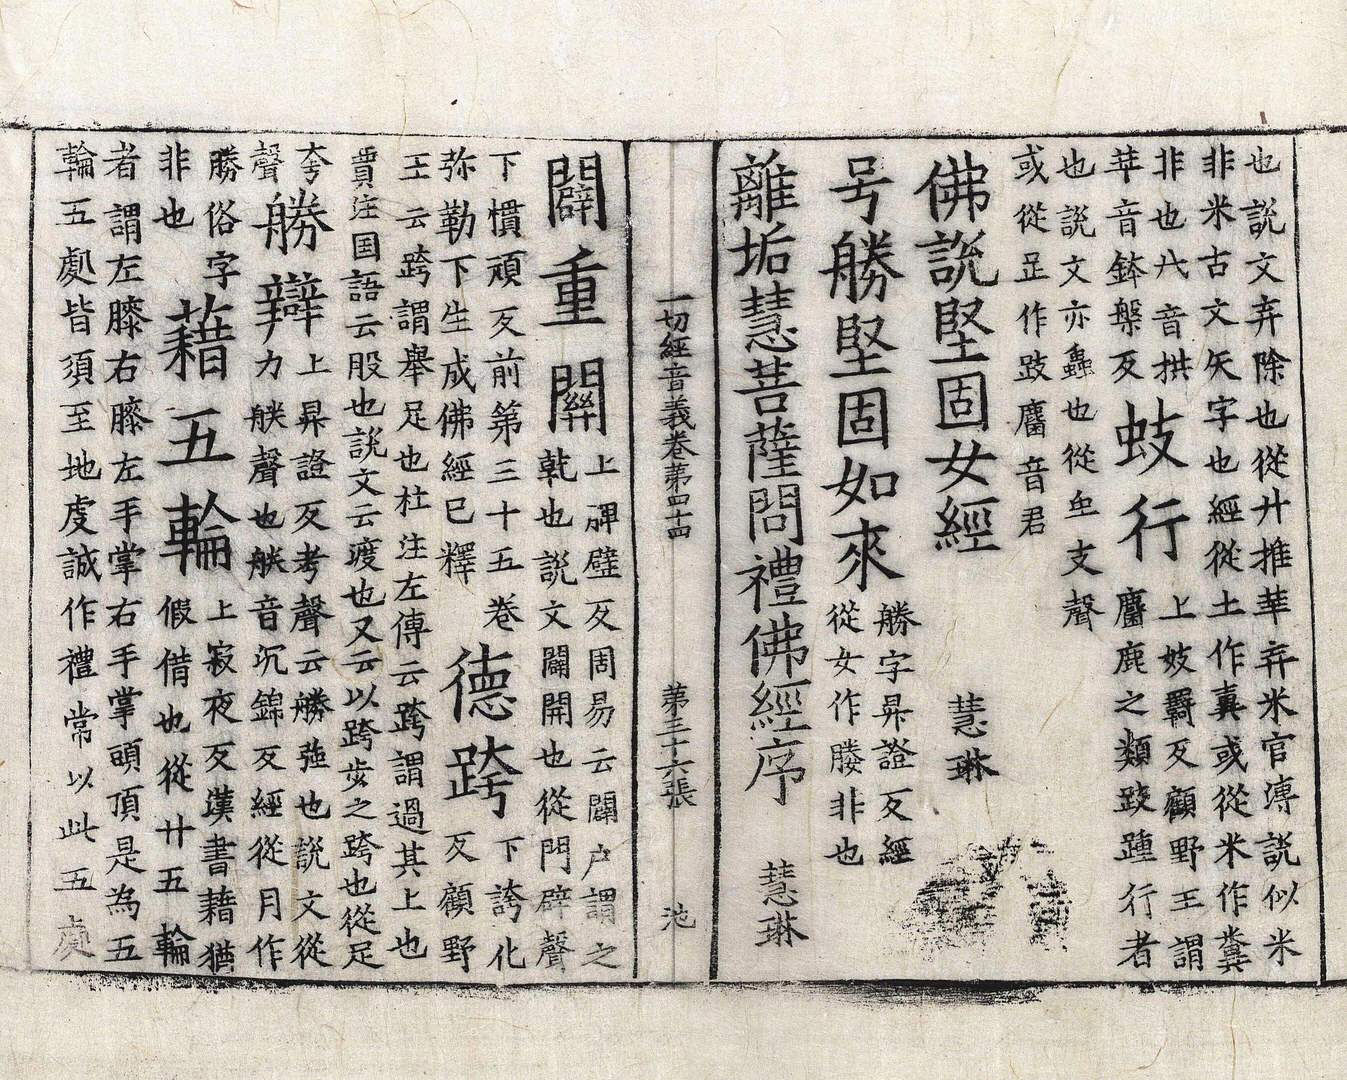 也説文弃除也從廾推華弃米官溥説似米
非米古文矢字也經從土作糞或從米作糞
非也𠬞音拱
苹音鉢槃反
蚑行
上妓𦌵反顧野王謂
麞鹿之類跂踵行者
也説文亦蟲也從虫支聲
或從足作跂麕音君
佛説堅固女經 慧琳
号勝堅固如來
勝字昇證反經
從女作媵非也
離垢慧菩薩問禮佛經序 慧琳
一切經音義卷第四十四 第三十六張 池
闢重關
上脾壁反周易云闢户謂之
乾也説文闢開也從門辟聲
下慣頑反前第三十五卷
弥勒下生成佛經已釋
德跨
下誇化
反顧野
王云跨謂舉足也杜注左傳云跨謂過其上也
賈注国語云股也説文云渡也又云以跨步之跨也從足
夸聲
勝辯
上昇證反考聲云勝強也説文從
力朕聲也朕音沉錦反經從月作
勝俗字
非也
藉五輪
上寂夜反漢書藉猶
假借也從廾五輪
者謂左膝右膝左手掌右手掌頭頂是為五
輪五處皆須至地虔誠作禮常以此五處